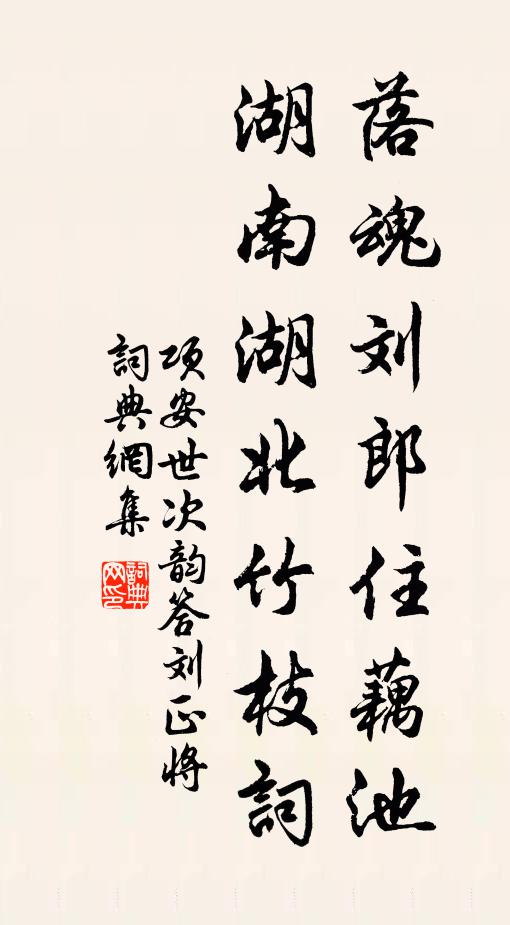 落魂刘郎住藕池
湖南湖北竹枝詞
项安世次韵答刘正将
詞典網集
詞典网印